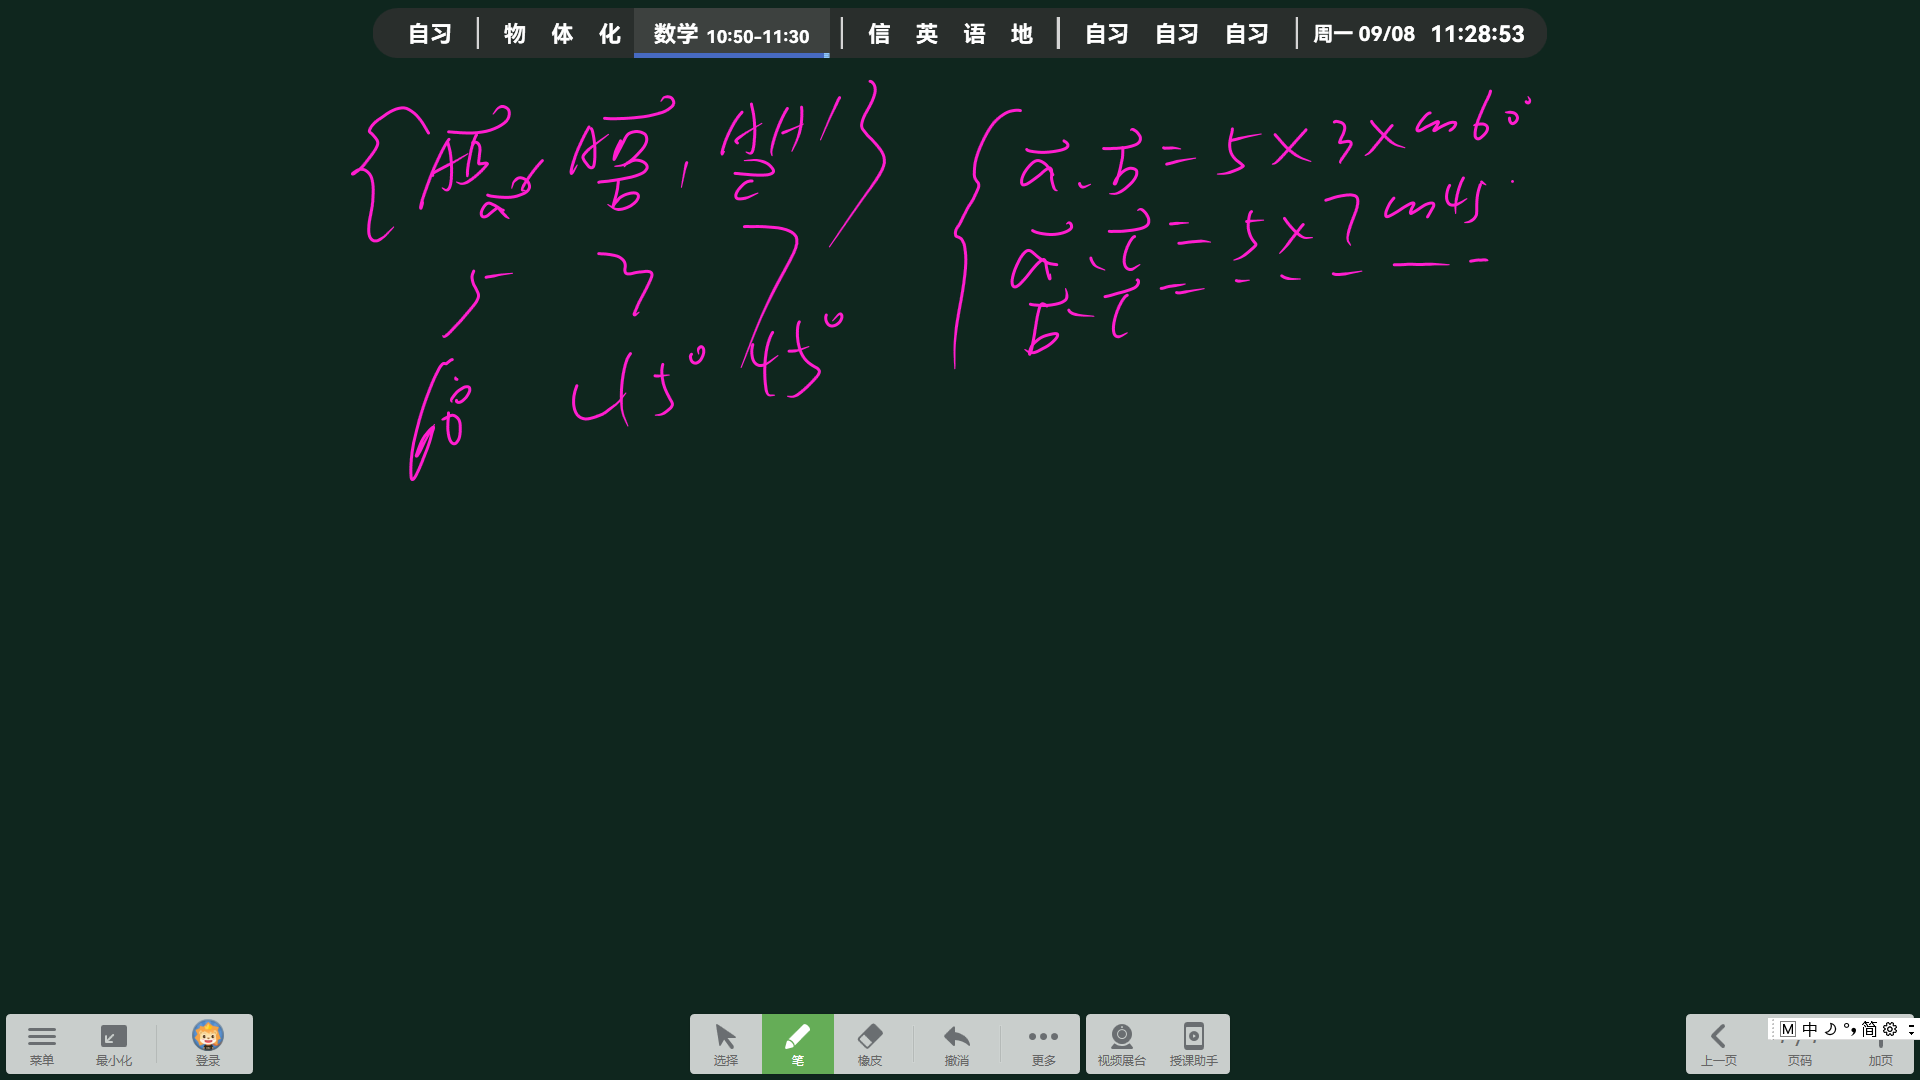 自习 | 物 体 化 数学 10:50-11:30 | 信 英 语 地 | 自习 自习 自习 | 周一 09/08 11:28:53
{AB, AD, AA'}
a b c
5 3 7
60° 45° 45°
a·b = 5×3×cos60°
a·c = 5×7cos45°
b·c = - - - — -
菜单 最小化 登录 选择 笔 橡皮 撤消 更多 视频展台 授课助手 上一页 页码 加页
M 中 简